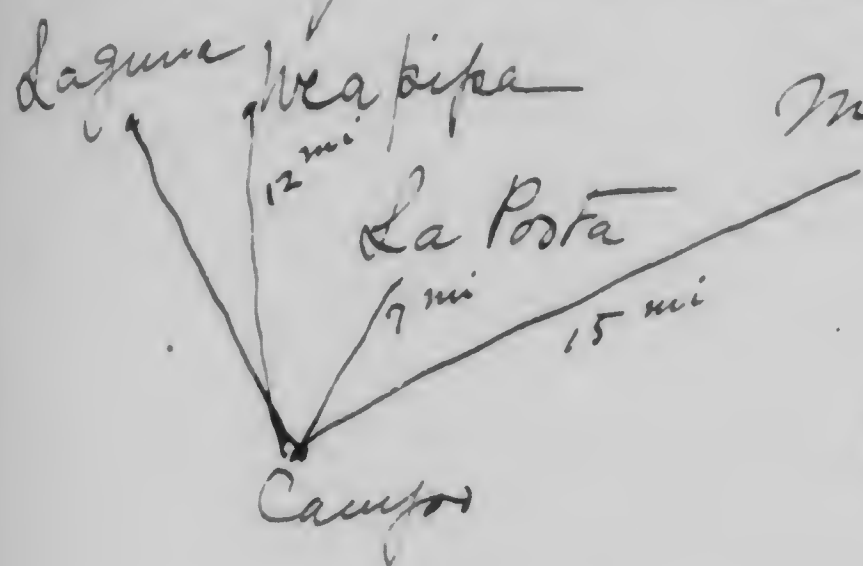 Laguna Weapipa
M
12 mi
La Posta
7 mi
15 mi
Campo